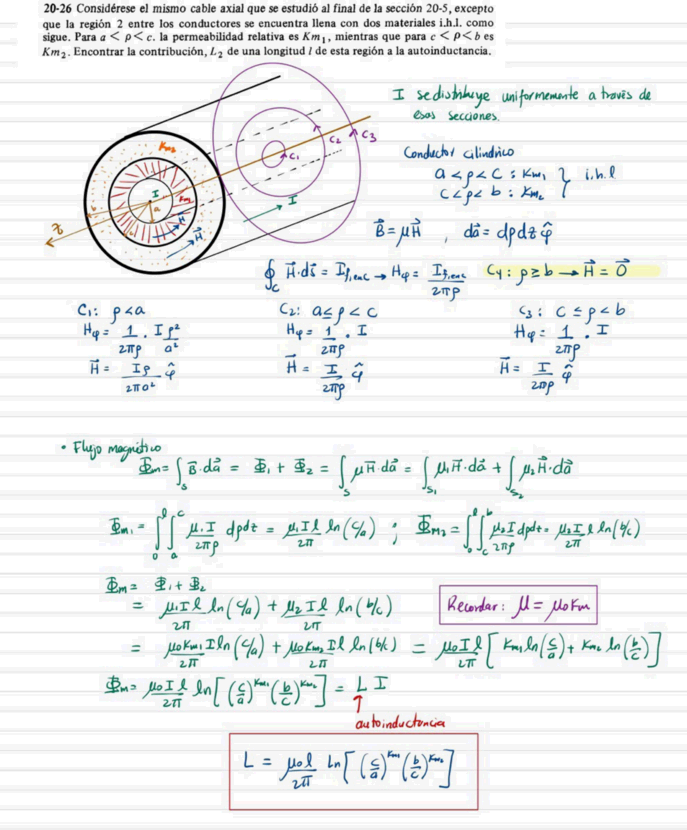 20-26 Considérese el mismo cable axial que se estudió al final de la sección 20-5, excepto
que la región 2 entre los conductores se encuentra llena con dos materiales i.h.l. como
sigue. Para a < ρ < c. la permeabilidad relativa es Km₁, mientras que para c < ρ < b es
Km₂. Encontrar la contribución, L₂ de una longitud l de esta región a la autoinductancia.
I se distribuye uniformemente a través de
esas secciones.
Conductor cilíndrico
a < ρ < c : Km₁ } i.h.l
c < ρ < b : Km₂
Km₂
I
Km₁
a
H⃗
H⃗
I
C₁
C₂
C₃
z
B⃗ = μH⃗ , da⃗ = dρdz φ̂
∮_C H⃗·ds⃗ = I_f,enc → Hφ = I_f,enc / 2πρ C₄: ρ ≥ b → H⃗ = 0⃗
C₁: ρ < a
Hφ = 1/2πρ · I ρ²/a²
H⃗ = Iρ/2πa² φ̂
C₂: a ≤ ρ < c
Hφ = 1/2πρ · I
H⃗ = I/2πρ φ̂
C₃: c ≤ ρ < b
Hφ = 1/2πρ · I
H⃗ = I/2πρ φ̂
• Flujo magnético
Φm = ∫_S B⃗·da⃗ = Φ₁ + Φ₂ = ∫_S μH⃗·da⃗ = ∫_S₁ μ₁H⃗·da⃗ + ∫_S₂ μ₂H⃗·da⃗
Φm₁ = ∫₀^l ∫_a^c μ₁I/2πρ dρdz = μ₁Il/2π ln(c/a) ; Φm₂ = ∫₀^l ∫_c^b μ₂I/2πρ dρdz = μ₂I/2π l ln(b/c)
Φm = Φ₁ + Φ₂
= μ₁Il/2π ln(c/a) + μ₂Il/2π ln(b/c)
Recordar: μ = μ₀Km
= μ₀Km₁/2π Il ln(c/a) + μ₀Km₂/2π Il ln(b/c) = μ₀Il/2π [Km₁ ln(c/a) + Km₂ ln(b/c)]
Φm = μ₀Il/2π ln[(c/a)^Km₁ (b/c)^Km₂] = L I
↑
autoinductancia
L = μ₀l/2π Ln[(c/a)^Km₁ (b/c)^Km₂]